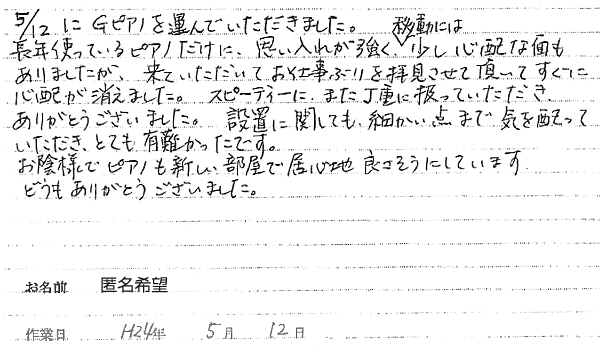 5/12 に Gピアノを運んでいただきました。 移動には
長年使っているピアノだけに、思い入れが強く、少し心配な面も
ありましたが、来ていただいてお仕事ぶりを拝見させて頂いてすぐに
心配が消えました。 スピーディーに、また丁重に扱っていただき
ありがとうございました。 設置に関しても、細かい点まで気を配って
いただき、とても有難かったです。
お陰様でピアノも新しい部屋で居心地良さそうにしています。
どうもありがとうございました。
お名前 匿名希望
作業日 H24年 5月 12日